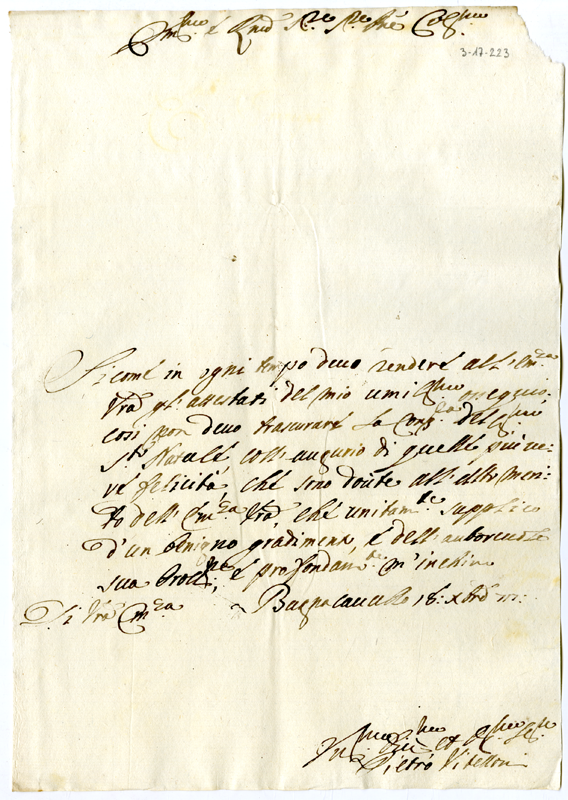 Em.mo é Rmo Sre Sre Pne Col.mo
3-17-223
Sicome in ogni tempo devo rendere all'Em.za
Vra gl'attestati del mio umil.mo ossequio,
cosi non devo trascurare la del
Sto Natale coll'augurio di quelle piu ve-
re felicità, ché sono doute all'alto meri-
to dell'Em.za Vra, ché unitam.te supplico
d'un benigno gradimen.o, é dell'autorevole
sua Prot.ne, é profondam.te m'inchino
Di Vra Em.za
Bagnacavallo 18: Xbre
Um.mo Dev.mo et
Pietro Vitelloni